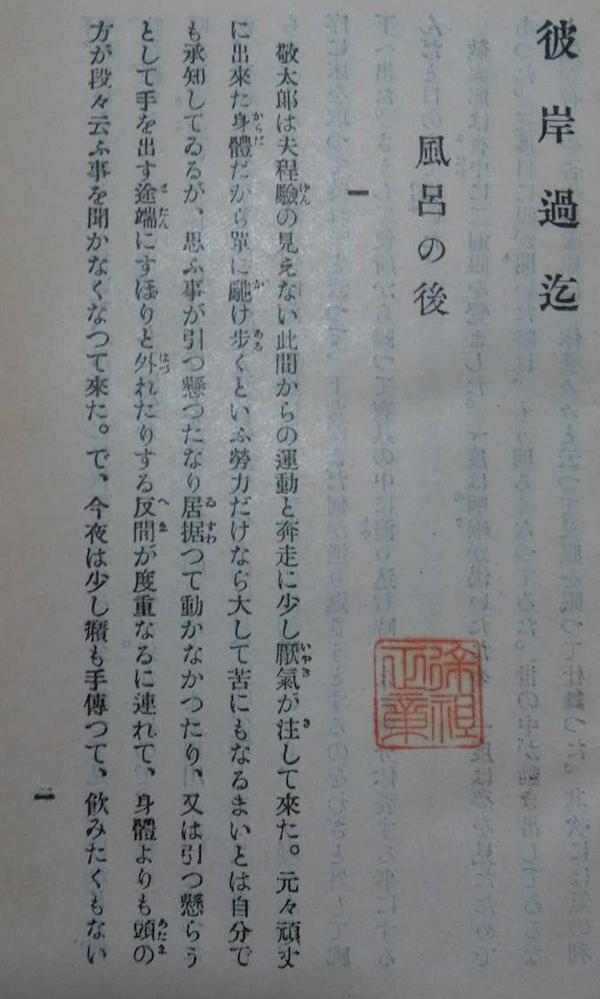 彼岸過迄
風呂の後
一
敬太郎は夫程驗の見えない此間からの運動と奔走に少し厭氣が注して來た。元々頑丈
に出來た身體だから單に馳け歩くといふ勞力だけなら大して苦にもなるまいとは自分で
も承知してゐるが、思ふ事が引つ懸つたなり居据つて動かなかつたり、又は引つ懸らう
として手を出す途端にすぽりと外れたりする反間が度重なるに連れて、身體よりも頭の
方が段々云ふ事を聞かなくなつて來た。で、今夜は少し癪も手傳つて、飮みたくもない